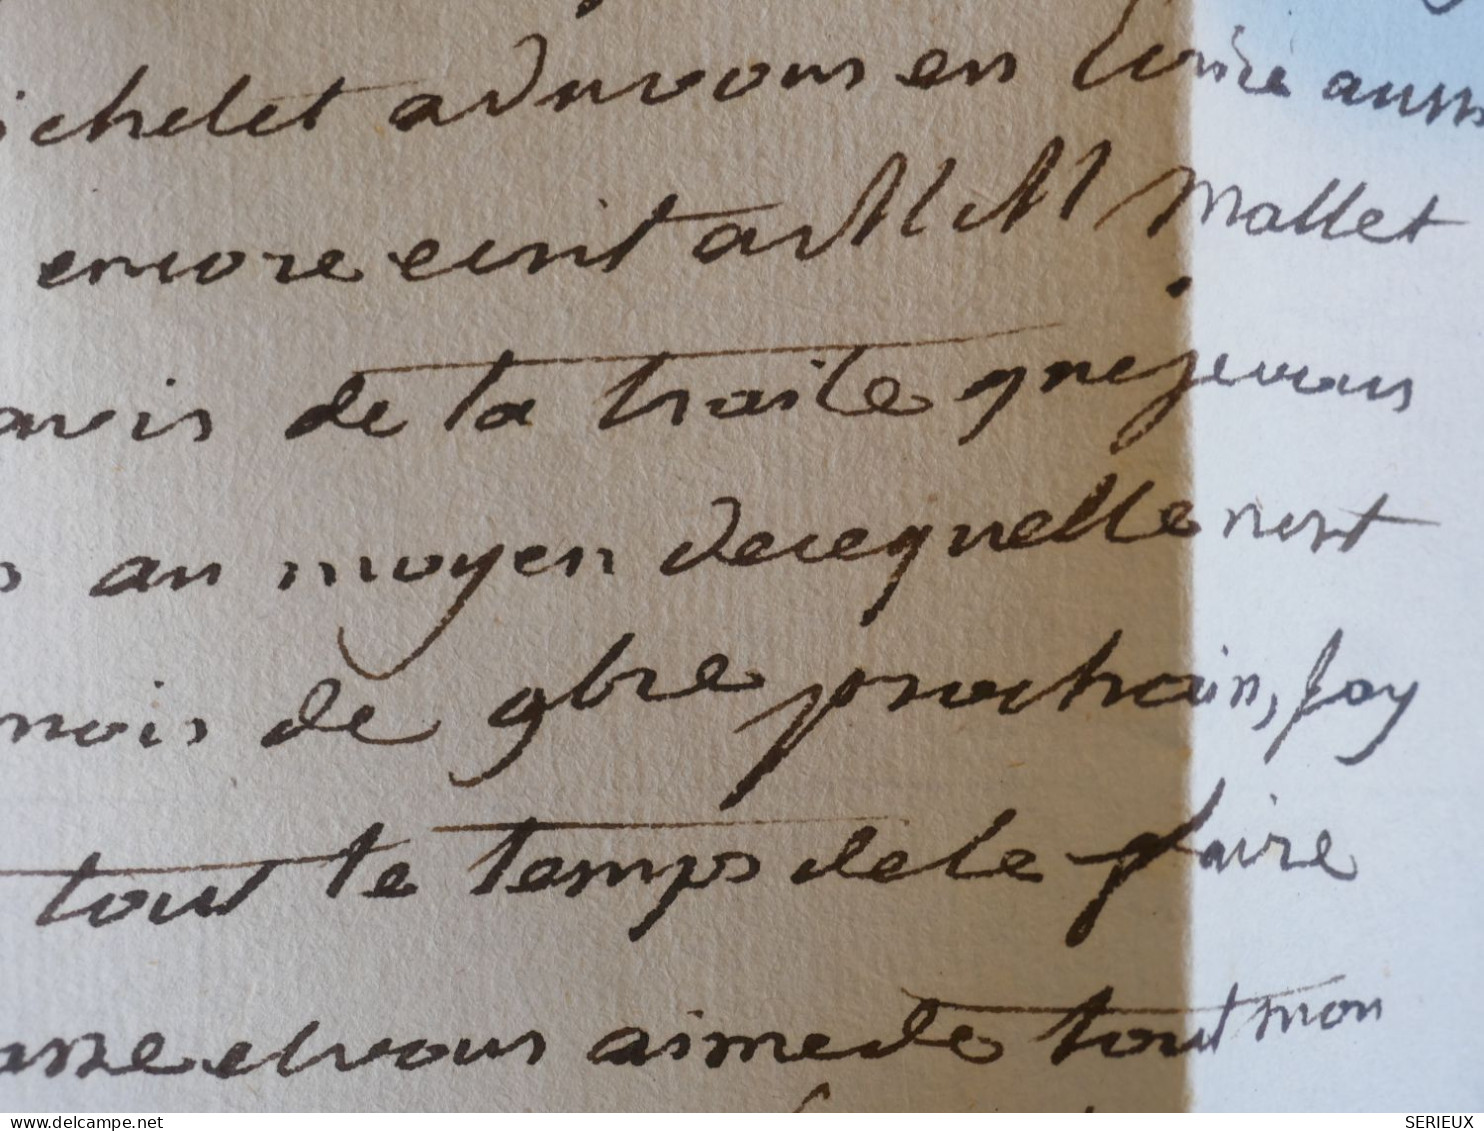 ichelet a du vous en Ecrire aussi
encore ecrit a MM Mallet
avis de la traite que je vous
s au moyen de ce quelle nest
mois de 9bre prochain, Jay
tout le temps de le faire
asse et vous aime de tout mon
SERIEUX
delcampe.net